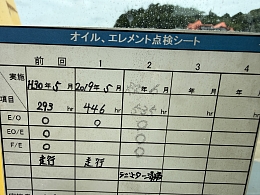 オイル、エレメント点検シート
前回 1 2 3 4
実施 H30年5月 2019年5月 年 月
項目 293 hr 446 hr hr hr
E/O ○ ○ ○
EO/E ○ ○
F/E ○ ○
走行 走行